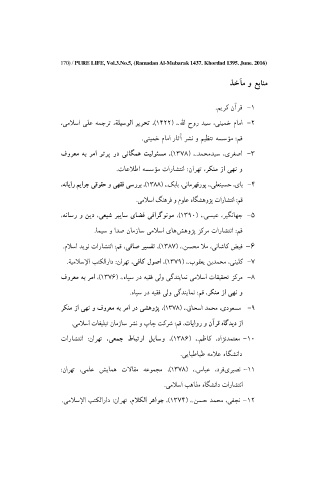 170) / PURE LIFE, Vol.3.No.5, (Ramadan Al-Mubarak 1437. Khordad 1395. June. 2016)
منابع و مآخذ
۱- قرآن کریم.
۲- امام خمینی، سید روح الله.. (۱۴۲۲). تحریر الوسیلة. ترجمه علی اسلامی.
قم: مؤسسه تنظیم و نشر آثار امام خمینی.
۳- اصغری، سیدمحمد.. (۱۳۷۸). مسئولیت همگانی در پرتو امر به معروف
و نهی از منکر. تهران: انتشارات مؤسسه اطلاعات.
۴- بای، حسینعلی. پورقهرمانی، بابک.. (۱۳۸۸). بررسی فقهی و حقوقی جرایم رایانه.
قم: انتشارات پژوهشگاه علوم و فرهنگ اسلامی.
۵- جهانگیر، عیسی.. (۱۳۹۰). مونوگرافی فضای سایبر شیعی. دین و رسانه.
قم: انتشارات مرکز پژوهش‌های اسلامی صدا و سیما.
۶- فیض کاشانی، ملا محسن.. (۱۳۸۷). تفسیر صافی. قم: انتشارات نوید اسلام.
۷- کلینی، محمدبن یعقوب.. (۱۳۷۹). اصول کافی. تهران: دارالکتب الإسلامیة.
۸- مرکز تحقیقات اسلامی نمایندگی ولی فقیه در سپاه.. (۱۳۷۶). امر به معروف
و نهی از منکر. قم: نمایندگی ولی فقیه در سپاه.
۹- مسعودی، محمد اسحاق.. (۱۳۷۸). پژوهشی در امر به معروف و نهی از منکر
از دیدگاه قرآن و روایات. قم: شرکت چاپ و نشر سازمان تبلیغات اسلامی.
۱۰- معتمدنژاد، کاظم.. (۱۳۸۶). وسایل ارتباط جمعی. تهران: انتشارات
دانشگاه علامه طباطبایی.
۱۱- نصیری‌فرد، عباس.. (۱۳۷۸). مجموعه مقالات همایش علمی. تهران:
انتشارات دانشگاه مذاهب اسلامی.
۱۲- نجفی، محمد حسن.. (۱۳۷۴). جواهر الکلام. تهران: دارالکتب الإسلامی.